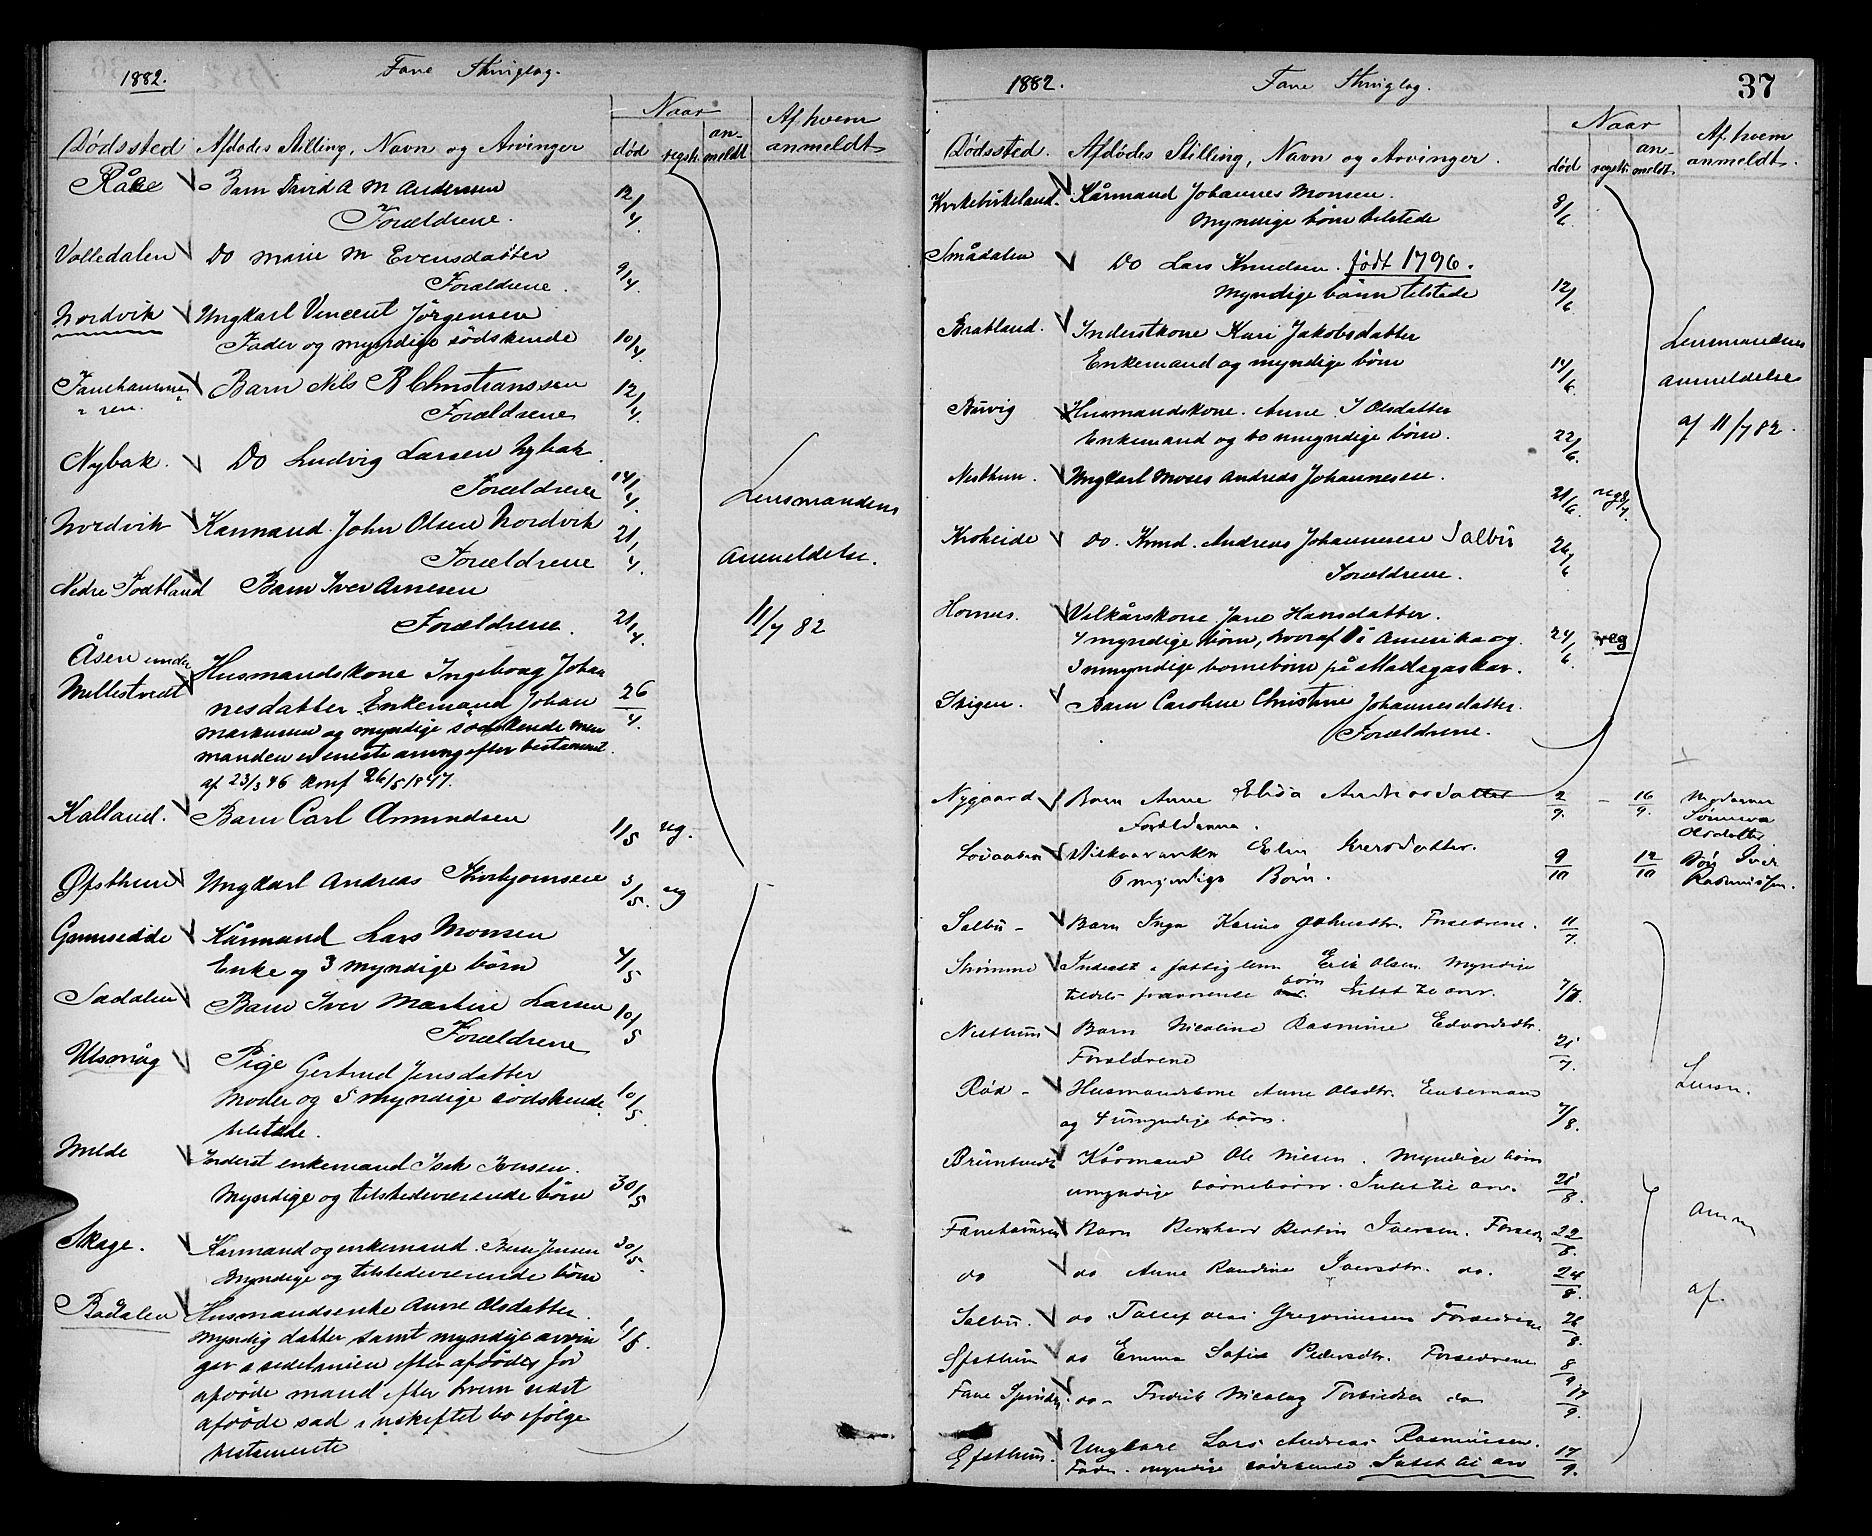 1882.
Fane Thinglag.
Naar
Dødssted
Afdødes Stilling, Navn og Arvinger
død
regstr.
an-
meldt
Af hvem
anmeldt
Råe
Barn David A M Anderssen
12/4
Forældrene.
Valledalen
Do Marie M Evensdatter
9/4
Forældrene.
Nordvik
Ungkarl Vincent Jørgensen
Fader og myndige sødskende
10/4
Fanehamme-
ren.
Barn Nils B Christianssen
12/4
Forældrene
Nybak.
Do Ludvig Larsen Nybak
14/4
Forældrene
Nordvik
Kårmand John Olsen Nordvik
21/4
Forældrene
Nedre Todtland
Barn Iver Arnesen
21/4
Forældrene.
Lensmandens
anmeldelse.
11/7 82
Åsen under
Mellestvedt
Husmandskone Ingeborg Johan
nesdatter Enkemand Johan
26/4
Markussen og myndige sødskende men
manden er eneste arving efter testament
af 23/3 46 konf 26/5 1847.
Kalland.
Barn Carl Amundsen
1/5
reg.
Øfsthun
Ungkarl Andreas Thorbjørnsen
3/5.
reg
Grimseidde
Kårmand Lars Monsen
4/5
Enke og 3 myndige børn
Sædalen
Barn Iver Martin Larsen
10/5
Forældrene
Ulsmåg
Pige Gertrud Jensdatter
Moder og 5 myndige sødskende
10/5
tilstede.
Milde
Inderst enkemand Isak Iversen.
Myndige og tilstedeværende børn
30/5
Skage.
Kårmand og enkemand. Jensen
30/5.
Myndige og tilstedeværende børn
Bødalen
Husmandsenke Anne Olsdatter
Myndig datter samt myndige arvin
1/6.
ger efter afdødes før
afdøde mand efter hvem sidst
afdøde sad i uskiftet bo ifølge
testamente
37
1882.
Fane Thinglag.
Naar
Dødssted.
Afdødes Stilling, Navn og Arvinger.
død
regstr.
an-
meldt
Af hvem
anmeldt.
Kirkebirkeland.
Kårmand Johannes Monsen.
8/6
Myndige børn tilstede
Smådalen
Do Lars Knudsen. født 1796.
12/6
Myndige børn tilstede
Bratland.
Inderstkone Kari Jakobsdatter
Enkemand og myndige børn
14/6.
Lensmandens
anmeldelse
af 11/7 82.
Buvig
Husmandskone. Anne I Olsdatter
Enkemand og to umyndige børn.
22/6.
Nestthun.
Ungkarl Moses Andreas Johannesen.
21/6
reg
Kroheide
do. Kmd. Andreas Johannesen Salbu
26/6
Forældrene.
Hornes.
Vilkårskone Jane Hansdatter.
4 myndige børn, hvoraf 1 i Amerika og
24/6.
reg
3 umyndige børnebørn på Madagaskar.
Skigen.
Barn Caroline Christine Johannesdatter.
Forældrene.
Nygaard
Barn Anne Elisa Andreasdatter
2/9.
16/9.
Moderen
Sønneva
Olsdatter
Forældrene.
Vilkaarsenke Elen Iversdatter.
9/10
12/10
Iver
Rasmussen.
6 myndige Børn.
Salbu -
Barn Inga Karine Johnsdtr. Forældrene.
11/7.
Strømme
Inderst & fattiglem Erik Olsen Myndige
tildels fraværende børn. Intet til arv.
7/7.
Nestthun
Barn Nicoline Rasmine Edvardsdtr.
21/7.
Forældrene
Rød -
Husmandskone Anne Olsdtr. Enkemand
og 4 umyndige børn.
7/8.
Lensm.
Brüntvedt
Kårmand Ole Nilsen. Myndige børn
umyndige børnebørn. Intet til arv.
21/8.
Fanehammeren
Barn Iversen. Foræld
22/8.
anm
do
do Anne Randine Iversdtr. do.
24/8.
af.
Salbu.
do Gregoriussen Forældrene
26/8.
Øfsthun
do Emma Sofie Pedersdtr. Forældrene
8/9
do Fredrik Nicolay do
17/9.
Øfsthun.
Ungkarl Lars Andreas Rasmussen.
17/9.
Fader. myndige sødskende Intet til arv